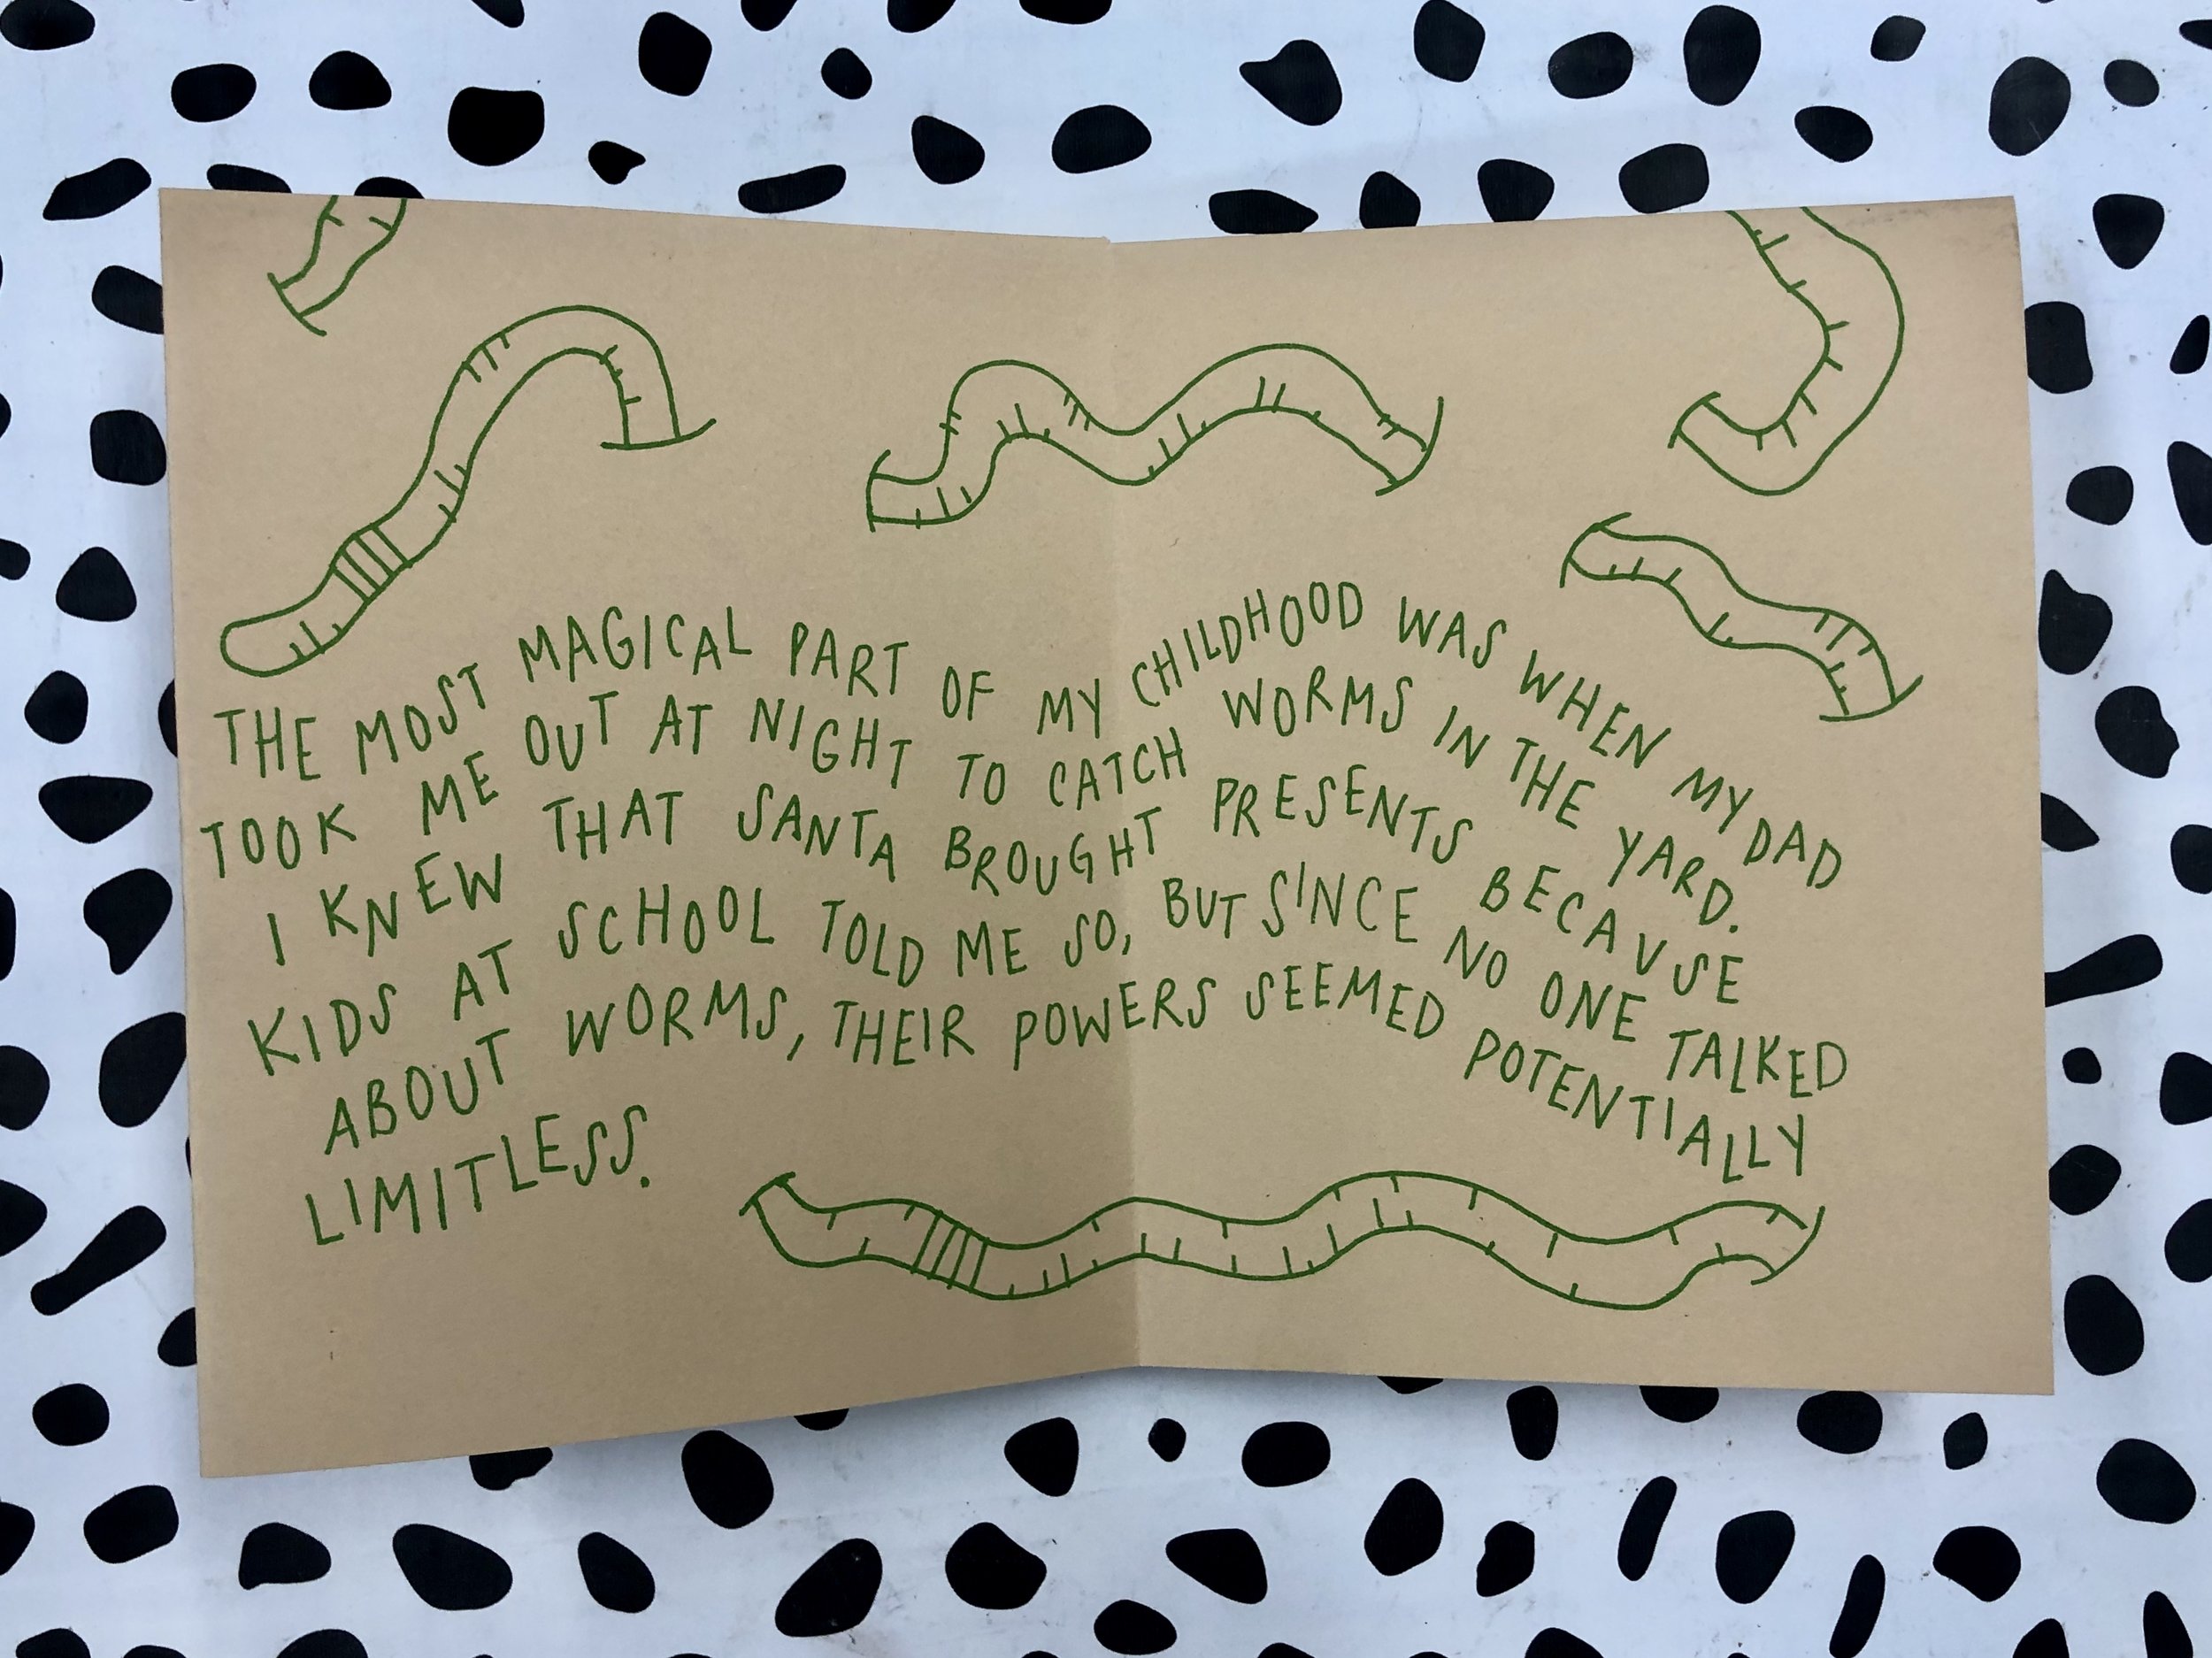 THE MOST MAGICAL PART OF MY CHILDHOOD WAS WHEN MY DAD
TOOK ME OUT AT NIGHT TO CATCH WORMS IN THE YARD.
I KNEW THAT SANTA BROUGHT PRESENTS BECAUSE
KIDS AT SCHOOL TOLD ME SO, BUT SINCE NO ONE TALKED
ABOUT WORMS, THEIR POWERS SEEMED POTENTIALLY
LIMITLESS.